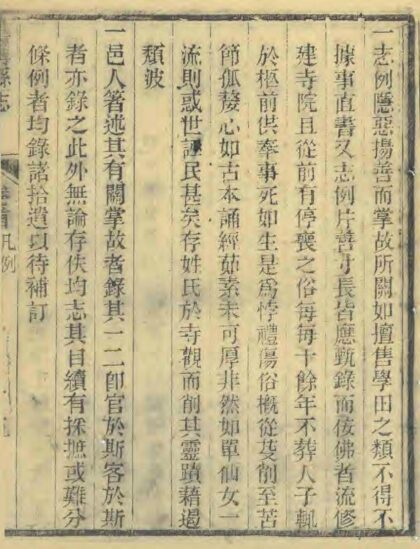 一志例隱惡揚善而掌故所關如擅售學田之類不得不
據事直書又志例片善寸長皆應甄錄而佞佛者流修
建寺院且從前有停喪之俗每每十餘年不葬人子輒
於柩前供奉事死如生是爲悖禮傷俗概從芟削至苦
節孤嫠心如古本誦經茹素未可厚非然如單仙女一
流則惑世誣民甚矣存姓氏於寺觀而削其靈蹟藉遏
頹波
一邑人箸述其有關掌故者錄其一二卽官於斯客於斯
者亦錄之此外無論存佚均志其目續有採摭或難分
條例者均錄諸拾遺以待補訂
縣志
卷首凡例